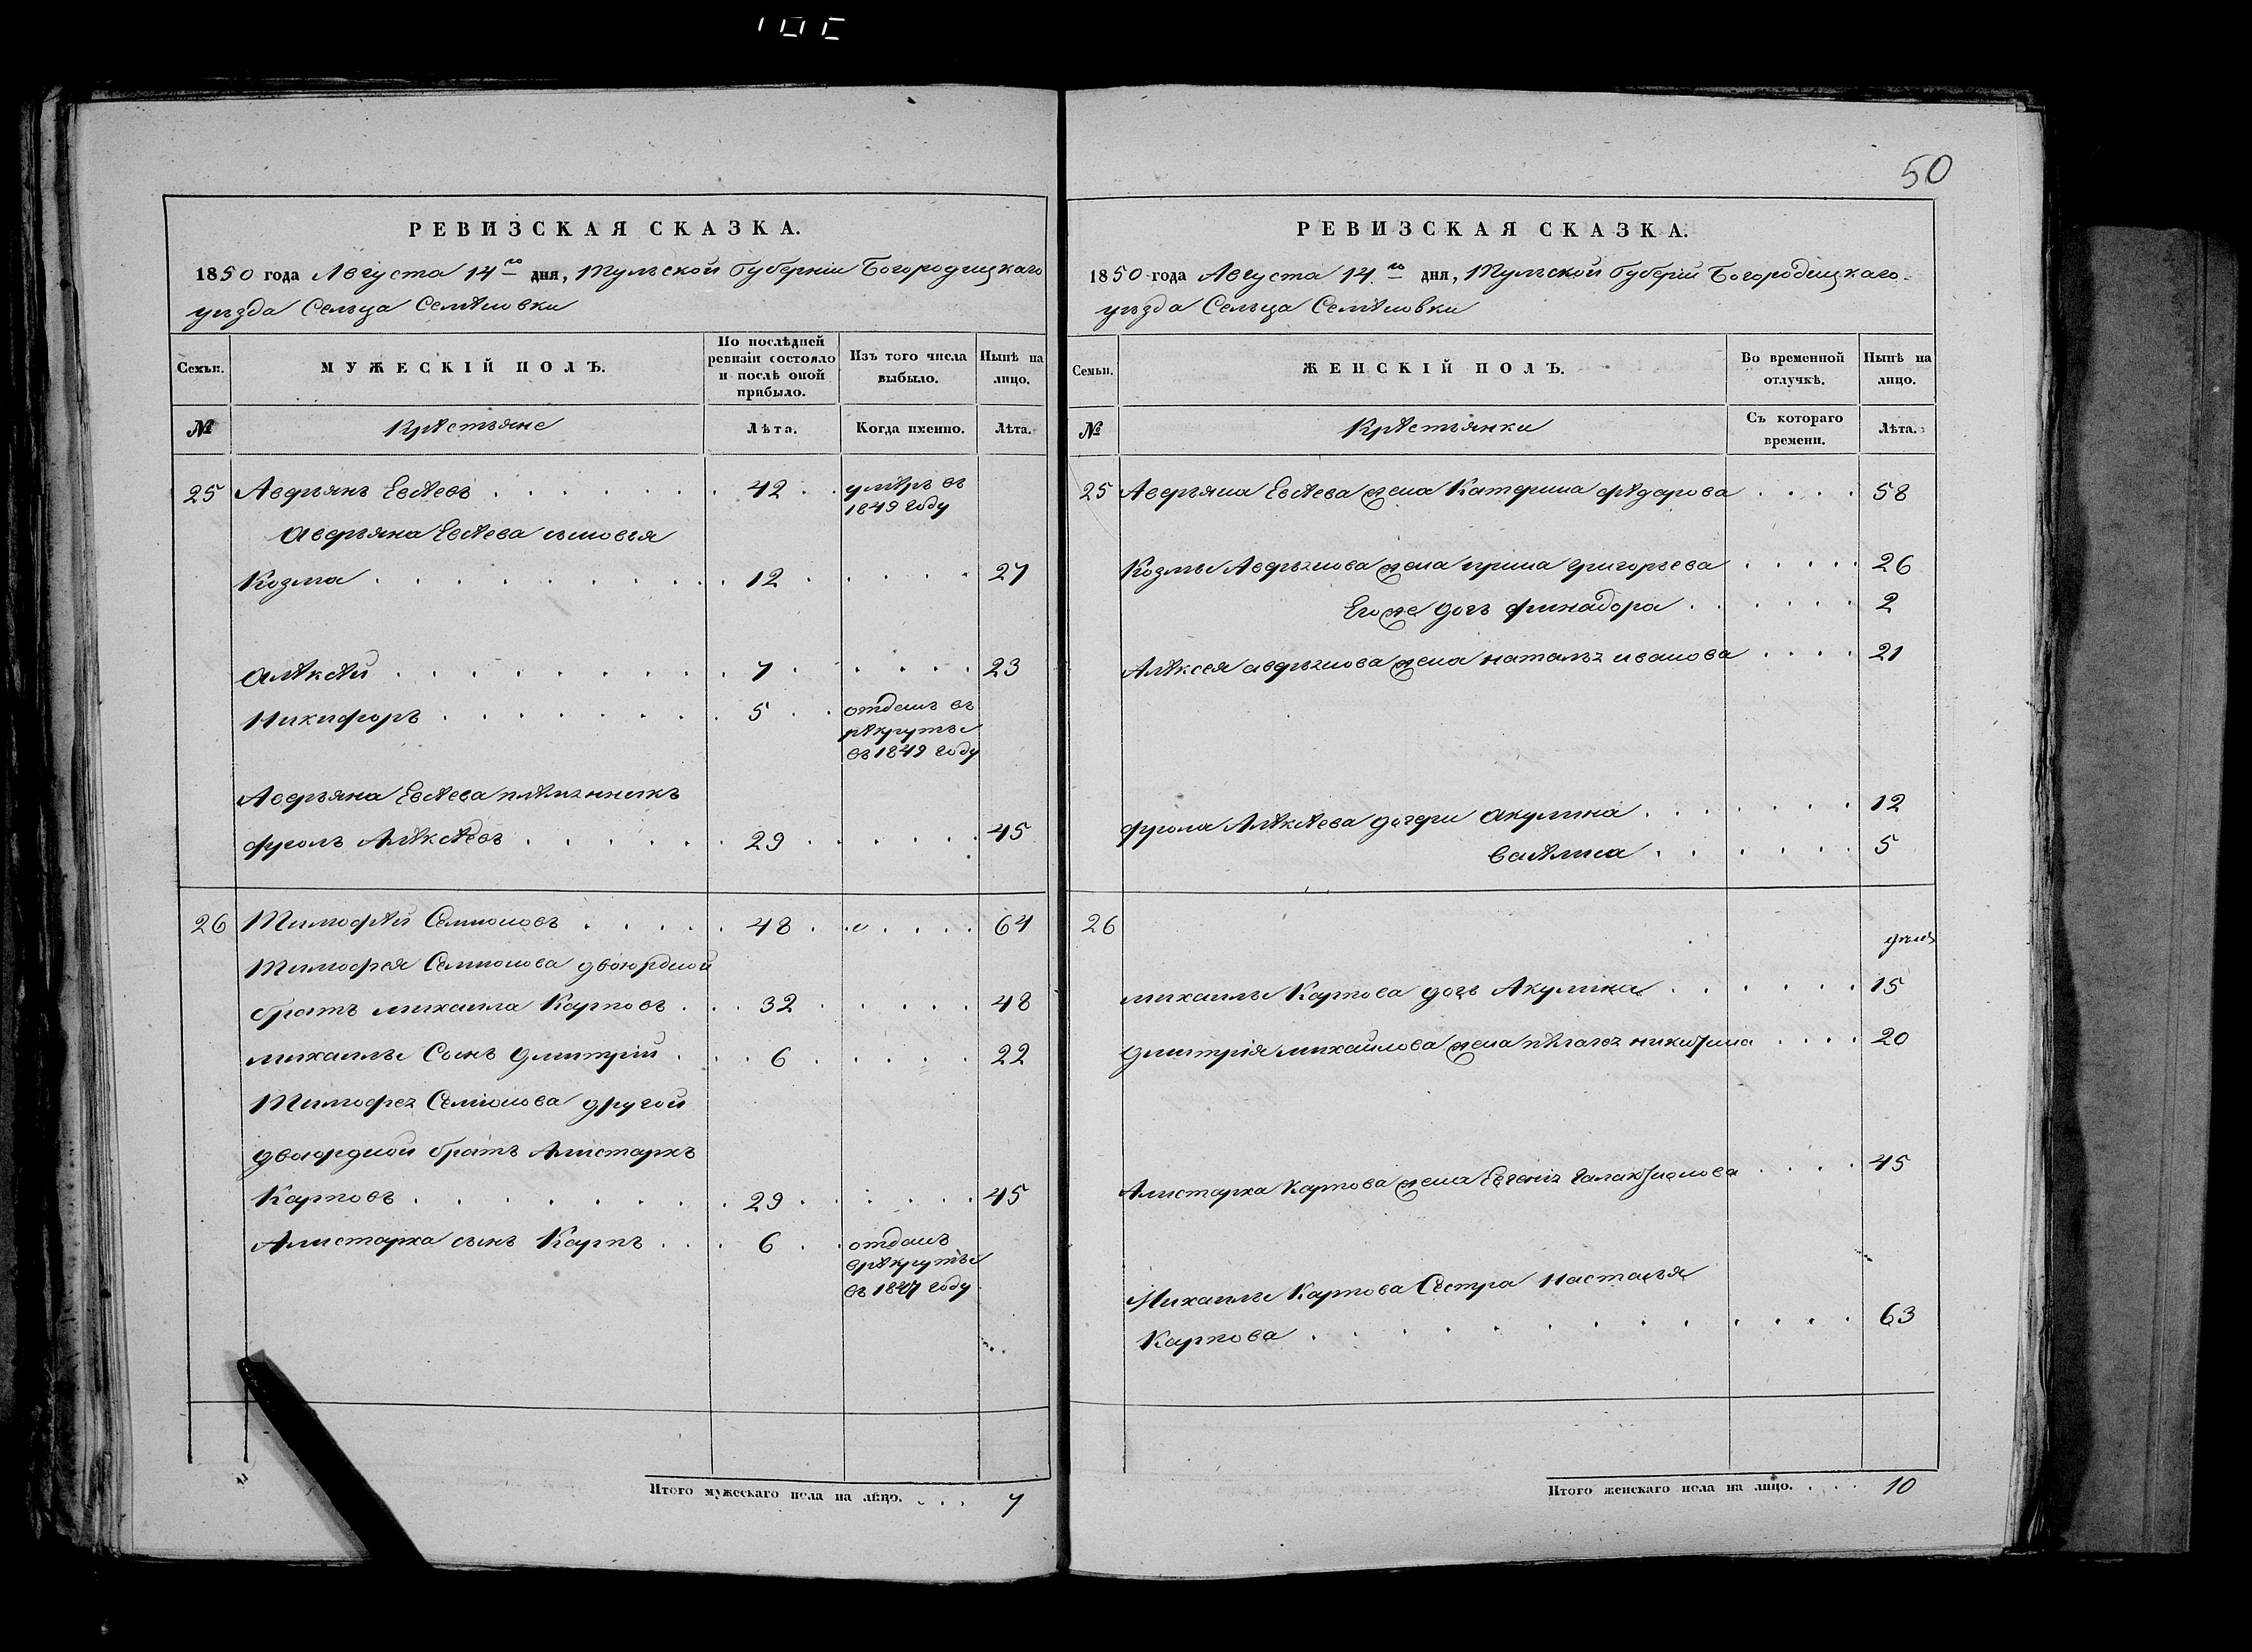 50
РЕВИЗСКАЯ СКАЗКА.
1850 года Августа 14го дня, Тульской Губерніи Богородицкаго
уѣзда Сельца Семѣновки
Семьи.
МУЖЕСКІЙ ПОЛЪ.
По послѣдней ревизіи состояло и послѣ оной прибыло.
Изъ того числа выбыло.
Нынѣ на лицо.
№
Крѣстьяне
Лѣта.
Когда именно.
Лѣта.
25 Аверьянъ Евсѣевъ 42 умѣръ въ
1849 году
Аверьяна Евсѣева сыновья
Козма 12 27
Алѣксѣй 7 23
Никифоръ 5 отданъ въ
рѣкруты
въ 1849 году
Аверьяна Евсѣева плѣмянникъ
Фролъ Алѣксѣевъ 29 45
26 Тимофѣй Сѣмионовъ 48 64
Тимофея Сѣмионова двоюрдной
братъ михаила Карповъ 32 48
михаилы Сынъ Дмитрій 6 22
Тимофея Сѣмионова другой
двоюрдной братъ Алистархъ
Карповъ 29 45
Алистарха сынъ Карпъ 6 отданъ
врѣкруты
въ 1847 году
Итого мужескаго пола на лицо. 7
РЕВИЗСКАЯ СКАЗКА.
1850 года Августа 14го дня, Тульской Губерніи Богородицкаго
уѣзда Сельца Семѣновки
Семьи.
ЖЕНСКІЙ ПОЛЪ.
Во временной отлучкѣ.
Нынѣ на лицо.
№
Крѣстьянки
Съ котораго времени.
Лѣта.
25 Аверьяна Евсѣева жена Катерина Фѣдарова 58
Козмы Аверьянова жена Ирина Григорьева 26
Его же дочь Финадора 2
Алѣксея аверьянова жена наталья иванова 21
Фрола Алѣксѣева дочери Акулина 12
Васѣлиса 5
26
михаилы Карпова дочь Акулина 15
Дмитрія михайлова жена пѣлагея никитина 20
Алистарха Карпова жена Евгенія Галактионова 45
Михаилы Карпова Сѣстра Настасья
Карпова 63
Итого женскаго пола на лицо. 10